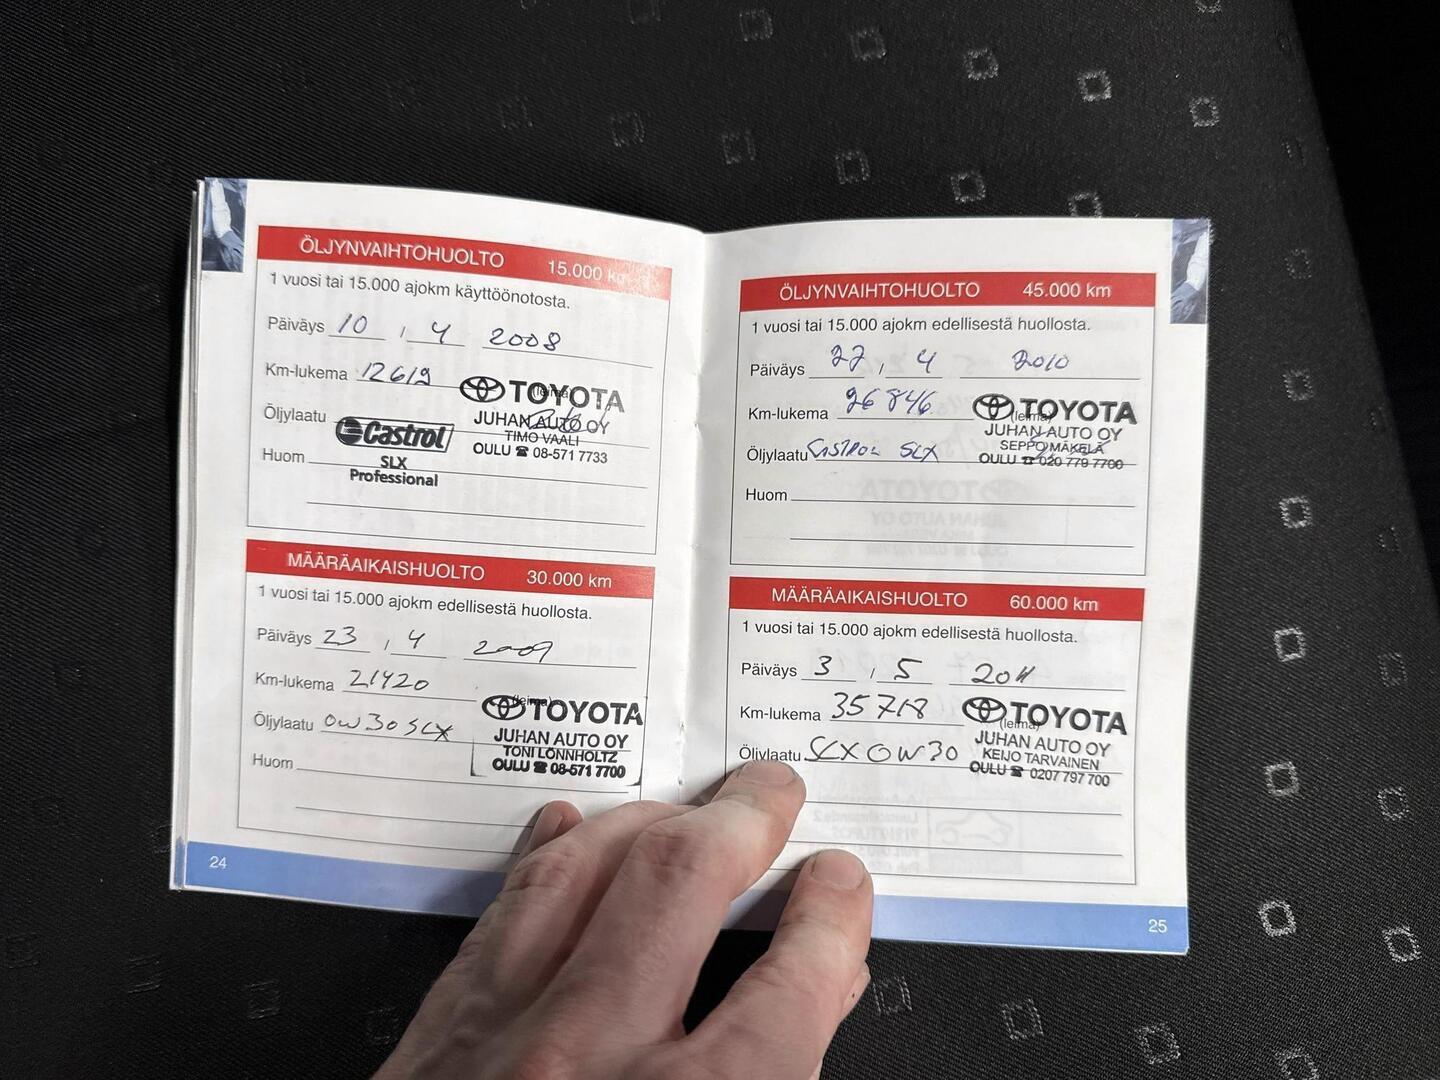 ÖLJYNVAIHTOHUOLTO 15.000 km
1 vuosi tai 15.000 ajokm käyttöönotosta.
Päiväys 10 , 4 2008
Km-lukema 12619
(leima)
TOYOTA
Öljylaatu
Castrol
SLX
Professional
JUHAN AUTO OY
TIMO VAALI
OULU ☎ 08-571 7733
Huom
MÄÄRÄAIKAISHUOLTO 30.000 km
1 vuosi tai 15.000 ajokm edellisestä huollosta.
Päiväys 23 , 4 2009
Km-lukema 21420
(leima)
TOYOTA
Öljylaatu 0W30 SLX
JUHAN AUTO OY
TONI LÖNNHOLTZ
OULU ☎ 08-571 7700
Huom
24
ÖLJYNVAIHTOHUOLTO 45.000 km
1 vuosi tai 15.000 ajokm edellisestä huollosta.
Päiväys 22 / 4 2010
Km-lukema 26846
(leima)
TOYOTA
Öljylaatu Castrol SLX
JUHAN AUTO OY
SEPPO MÄKELÄ
OULU ☎ 020 779 7700
Huom
MÄÄRÄAIKAISHUOLTO 60.000 km
1 vuosi tai 15.000 ajokm edellisestä huollosta.
Päiväys 3 , 5 2011
Km-lukema 35718
(leima)
TOYOTA
Öljylaatu SLX 0W30
JUHAN AUTO OY
KEIJO TARVAINEN
OULU ☎ 0207 797 700
25